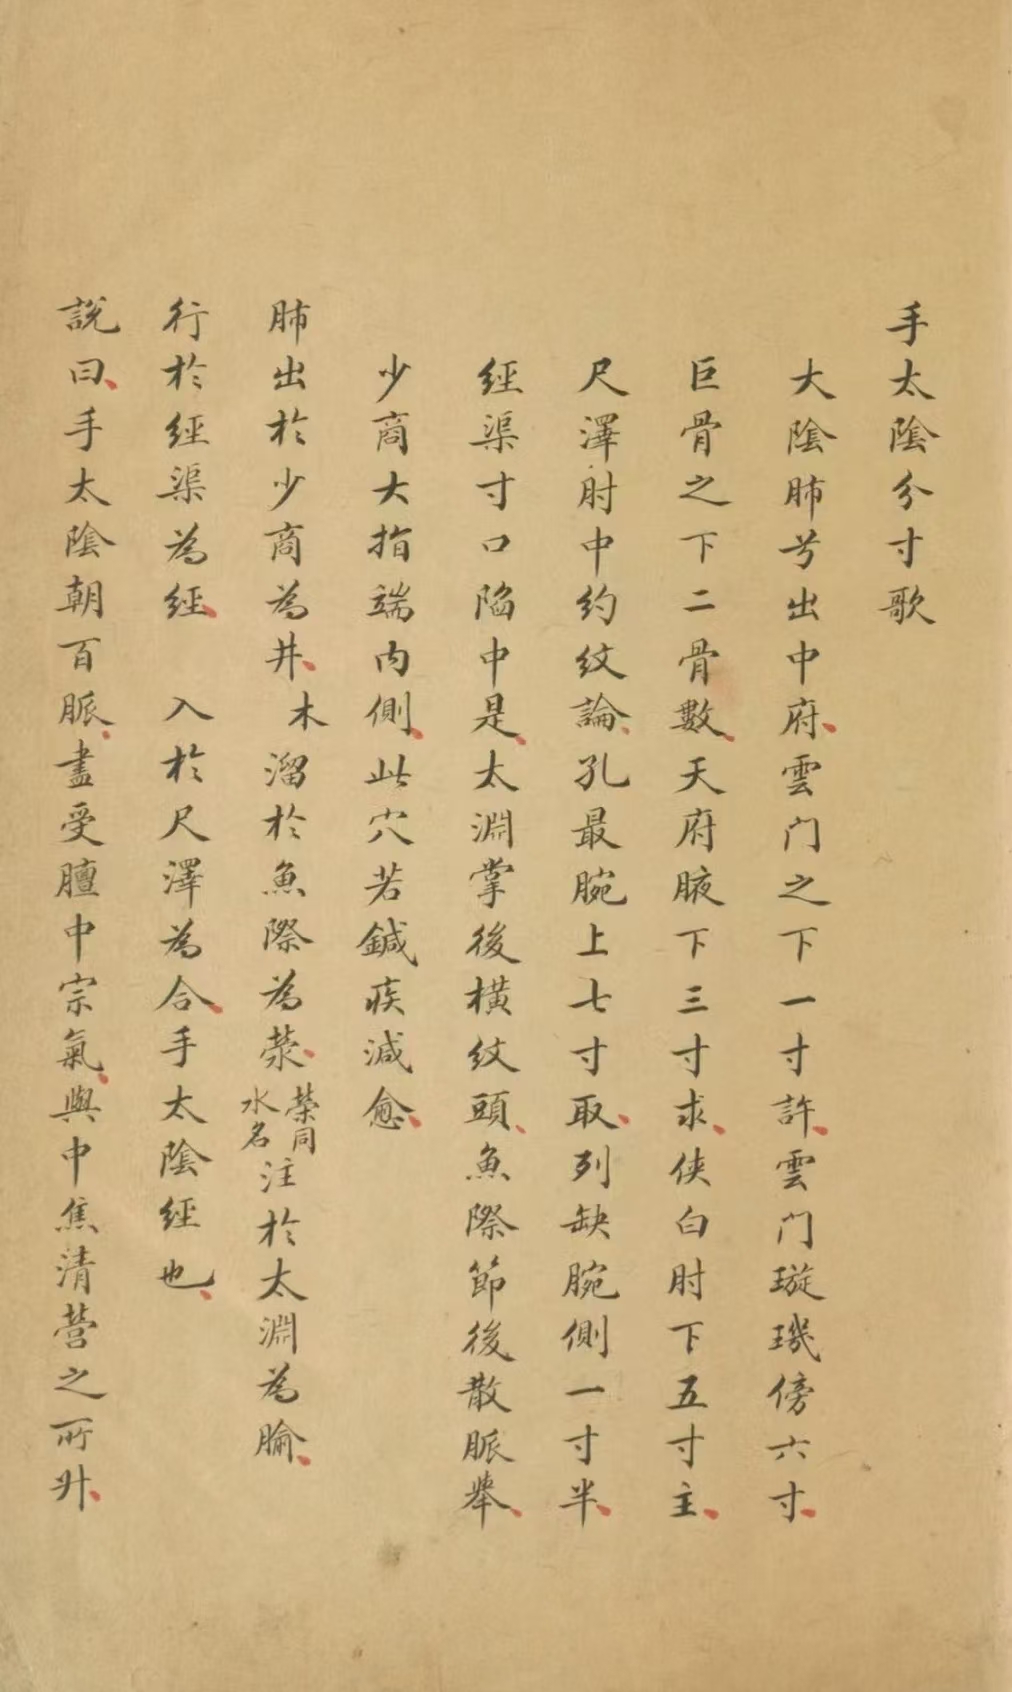 手太陰分寸歌
大陰肺兮出中府雲门之下一寸許雲门璇璣傍六寸
巨骨之下二骨數天府腋下三寸求侠白肘下五寸主
尺澤肘中約紋論孔最腕上七寸取列缺腕側一寸半
經渠寸口陷中是太淵掌後橫紋頭魚際節後散脈舉
少商大指端内側此穴若鍼疾減愈
肺出於少商為井木溜於魚際為滎滎同水名注於太淵為腧
行於經渠為經　入於尺澤為合手太陰經也
說曰手太陰朝百脈盡受膻中宗氣與中焦清营之所升